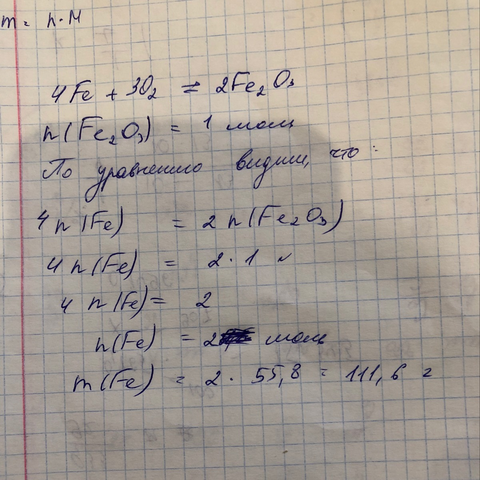 m = n·M
4Fe + 3O₂ ⇌ 2Fe₂O₃
n(Fe₂O₃) = 1 моль
По уравнению видим, что:
4n(Fe) = 2n(Fe₂O₃)
4n(Fe) = 2·1
4n(Fe) = 2
n(Fe) = 2 моль
m(Fe) = 2·55,8 = 111,6 г